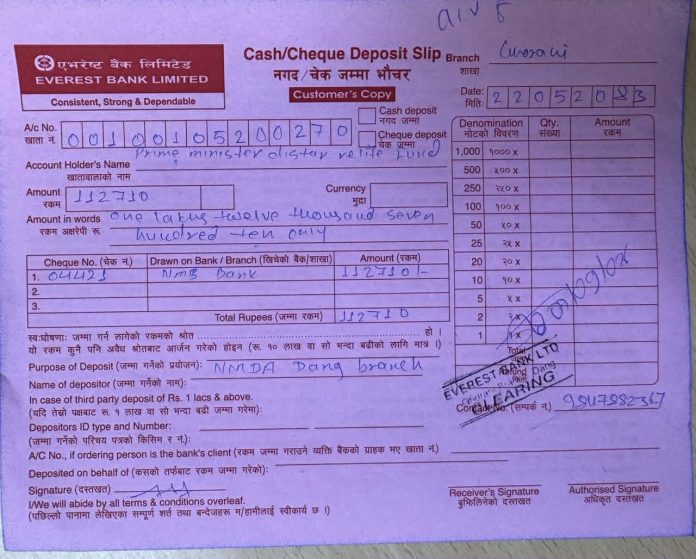 एभरेष्ट बैंक लिमिटेड
EVEREST BANK LIMITED
Consistent, Strong & Dependable
Cash/Cheque Deposit Slip
नगद/चेक जम्मा भौचर
Customer's Copy
Branch
शाखा
Date:
मिति:
2 2 0 5 2 0 8 3
Cash deposit
नगद जम्मा
Cheque deposit
चेक जम्मा
A/c No.
खाता नं.
0 0 1 0 0 1 0 5 2 0 0 2 7 0
Account Holder's Name Prime minister distar relife fund
खातावालाको नाम
Amount
रकम
112710
Currency
मुद्रा
Amount in words one lakhs twelve thousand seven
रकम अक्षरेपी रू. hundred ten only
Cheque No. (चेक नं.) Drawn on Bank / Branch (खिचेको बैंक/शाखा) Amount (रकम)
1. 04421 NMB Bank 112710/-
2.
3.
Total Rupees (जम्मा रकम) 112710
Denomination Qty. Amount
नोटको विवरण संख्या रकम
1,000 १००० x
500 ५०० x
250 २५० x
100 १०० x
50 ५० x
25 २५ x
20 २० x
10 १० x
5 ५ x
2 २ x
1 १ x
Total
Refund
EVEREST BANK LTD
Dang
CLEARING
स्व:घोषणा: जम्मा गर्न लागेको रकमको श्रोत हो ।
यो रकम कुनै पनि अवैध श्रोतबाट आर्जन गरेको होइन (रू. १० लाख वा सो भन्दा बढीको लागि मात्र ।)
Purpose of Deposit (जम्मा गर्नेको प्रयोजन): NMDA Dang branch
Name of depositor (जम्मा गर्नेको नाम):
In case of third party deposit of Rs. 1 lacs & above.
(यदि तेस्रो पक्षबाट रू. १ लाख वा सो भन्दा बढी जम्मा गरेमा):
(सम्पर्क नं.) 9847982367
Depositors ID type and Number:
(जम्मा गर्नेको परिचय पत्रको किसिम र नं.):
A/C No., if ordering person is the bank's client (रकम जम्मा गराउने व्यक्ति बैंकको ग्राहक भए खाता नं.)
Deposited on behalf of (कसको तर्फबाट रकम जम्मा गरेको):
Signature (दस्तखत)
I/We will abide by all terms & conditions overleaf.
(पछिल्लो पानामा लेखिएका सम्पूर्ण शर्त तथा बन्देजहरू म/हामीलाई स्वीकार्य छ ।)
Receiver's Signature
बुझिलिनेको दस्तखत
Authorised Signature
अधिकृत दस्तखत